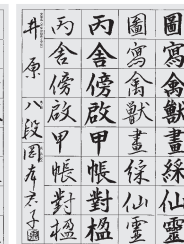 圖寫禽獸畫綵仙靈
圖寫禽獸畫綵仙靈
丙舍傍啟甲帳對楹
丙舍傍啟甲帳對楹
井原
八段